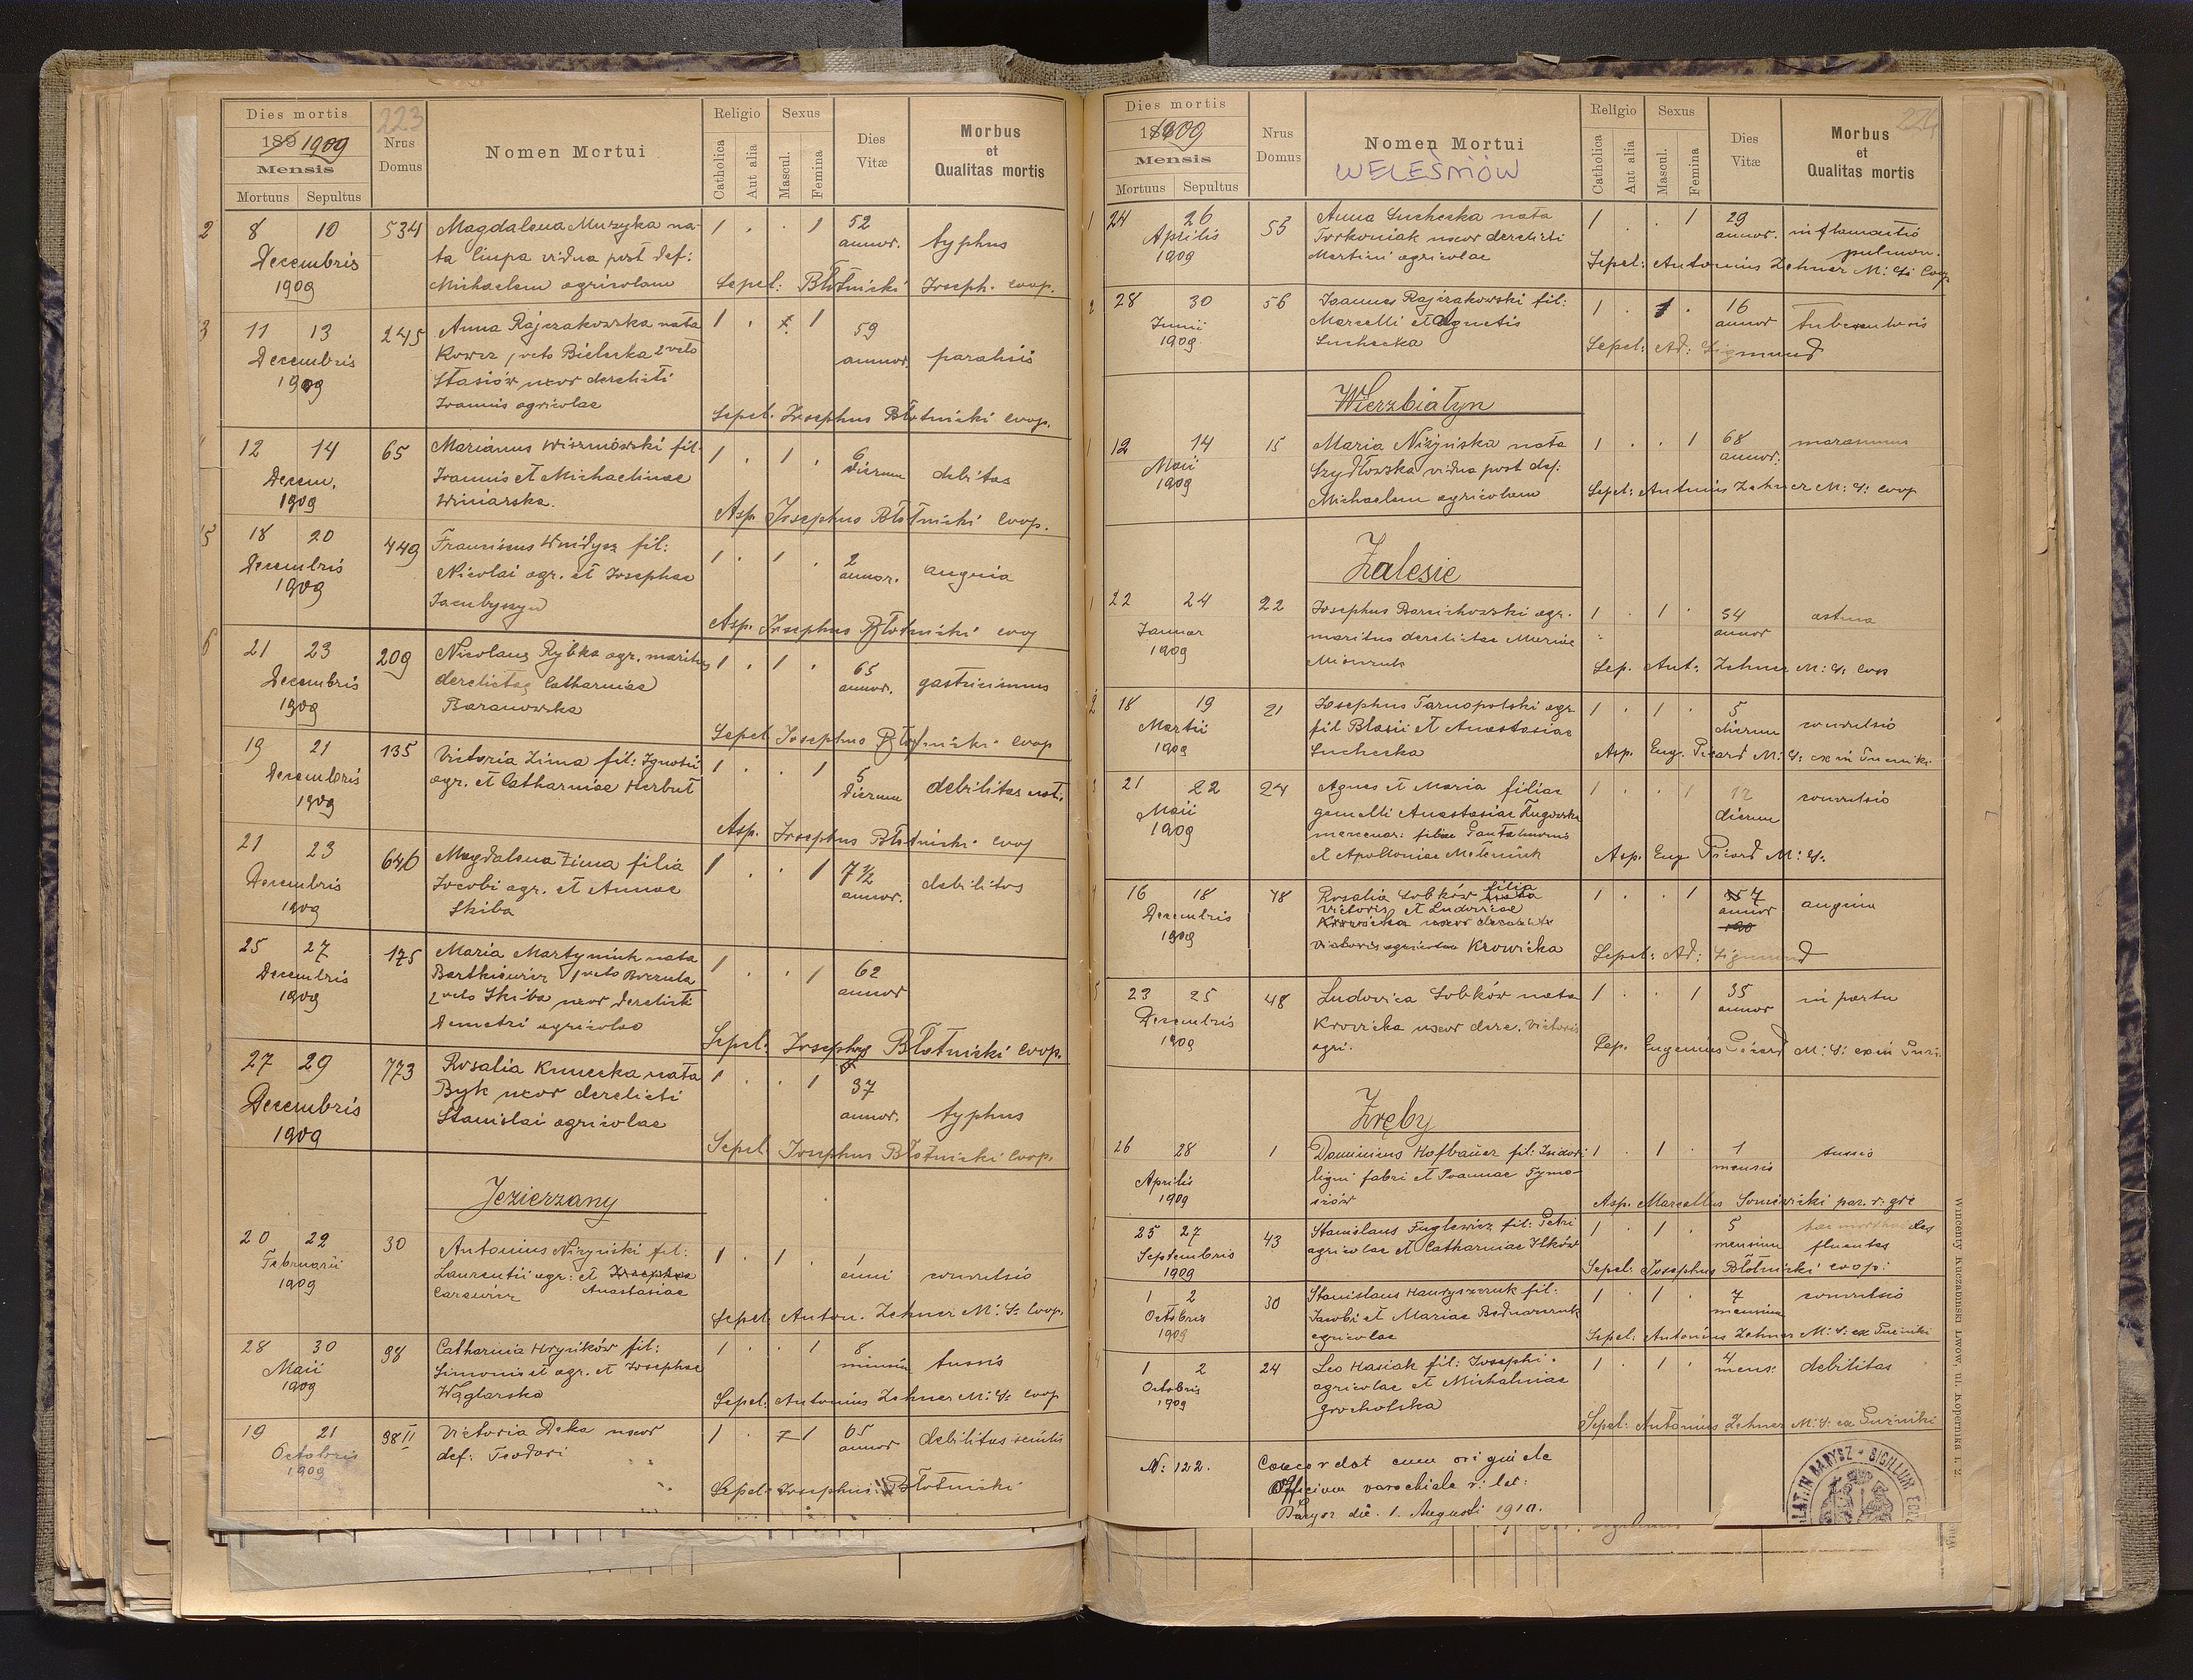 Dies mortis
223
189 1909
Mensis
Mortuus Sepultus
Nrus Domus
Nomen Mortui
Religio
Catholica
Aut alia
Sexus
Mascul.
Femina
Dies Vitæ
Morbus et Qualitas mortis
2 8 10 534 Magdalena Muzyka na- 1 . . 1 52
Decembris ta Ciupa vidua post def: annor. typhus
1909 Michaelem agricolam Sepel: Błotnicki Joseph. coop.
3 11 13 245 Anna Rajczakowska nata 1 . 1 59
Decembris Kowcz 1 voto Bielecka 2 voto annor. paralisis
1909 Stasiów uxor derelicti
Joannis agricolae Sepel. Josephus Błotnicki coop.
12 14 65 Marianus Wiszniowski fil. 1 . 1 . 6
Decem. Joannis et Michaelinae dierum debitas
1909 Winiarska. Asp. Josephus Błotnicki Coop.
5 18 20 449 Franciscus Wnidysz fil: 1 . 1 . 2
Decembris Nicolai agr. et Josephae annor. angina
1909 Asp. Josephus Błotnicki coop
6 21 23 209 Nicolaus Rybka agr. maritus 1 . 1 . 65
Decembris derelictae Catharinae annor. gastricismus
1909 Baranowska Sepel Josephus Błotnicki coop
19 21 135 Victoria Zima fil: Ignatii 1 . . 1 5
Decembris agr. et Catharinae Herbut dierum debilitas nat.
1909 Asp. Josephus Błotnicki coop
21 23 646 Magdalena Zima filia 1 . . 1 7 1/2
Decembris Jacobi agr. et Annae annor. debilitas
1909 Skiba
25 27 175 Maria Martyniuk nata 1 . . 1 62
Decembris Bartkiewicz 1 voto annor
1909 2 voto Skiba uxor derelicti
Demetri agricolae Sepel. Josephus Błotnicki coop.
27 29 773 Rosalia Kunecka nata 1 . . 1 37
Decembris Byk uxor derelicti annor. typhus
1909 Stanislai agricolae Sepel. Josephus Błotnicki coop.
Jezierzany
20 22 30 Antonius Niżyński fil: 1 . 1 . 1
Februarii Laurentii agr: et Josephae anni convulsio
1909 Anastasiae Sepel: Anton. Zehner M: S: Coop.
28 30 98 Catharina Hryńków fil: 1 . . 1 8
Maii Simonis et agr. et Josephae tussis
1909 Węglarska Sepel: Antonius Zehner M: S: coop
19 21 98 II Victoria Deka uxor 1 . 1 65
Octobris def: Teodori annor debilitas senilis
1909 Sepel: Josephus Błotnicki
Dies mortis
1909
Mensis
Mortuus Sepultus
Nrus Domus
Nomen Mortui
WELEŚNIÓW
Religio
Catholica
Aut alia
Sexus
Mascul.
Femina
Dies Vitæ
Morbus et Qualitas mortis
224
1 24 26 53 Anna Suchecka nata 1 . . 1 29
Aprilis Torkoniak uxor derelicti annor. inflamatio
1909 Martini agricolae pulmon.
Sepel: Antonius Zehner M: S: Coop
2 28 30 56 Joannes Rajczakowski fil: 1 . 1 . 16
Junii Marcelli et Agnetis annor tuberculosis
1909 Suchecka Sepel: Ad: Zigmund
Wierzbiatyn
1 12 14 15 Maria Niżyńska nata 1 . . 1 68 marasmus
Maii Szydłowska vidua post def: annor.
1909 Michaelem agricolam Sepel: Antonius Zehner M: S: coop
Zalesie
1 22 24 22 Josephus agr. 1 . 1 . 54 astma
Januar maritus derelictae Mariae annor
1909 Sep. Ant: Zehner M: S: coop
2 18 19 21 Josephus Tarnopolski agr 1 . 1 . 5
Martii fil Blasii et Anastasiae dierum convulsio
1909 Suchecka Asp. Eug. Picard M: S:
3 21 22 24 Agnes et Maria filiae 1 . . 1 12 convulsio
Maii gemelli Anastasiae Ługowska dierum
1909 mercenar: filiae Pantaleimonis
et Apolloniae Asp. Eug. Picard M: S.
4 16 18 48 Rosalia Sobków filia 1 . . 1 7 angina
Decembris Victoris et Ludovicae annor
1909 Krowicka
Sepel: Ad: Zigmund
5 23 25 48 Ludovica Sobków nata 1 . . 1 35 in partu
Decembris Krowicka uxor dere. Victoris annor
1909 agri. Sep. Eugenius Picard M: S:
Zręby
1 26 28 1 Dominicus Hofbauer fil: Isidori 1 . 1 . 1 tussis
Aprilis ligni fabri et Joannae Tymo- mensis
1909 siów Asp. Marcellus par. r: gre
2 25 27 43 Stanislaus Fuglewicz fil: Petri 1 . 1 . 5
Septembris agricolae et Catharinae Ilków mensium fluentes
1909 Sepel: Josephus Błotnicki coop:
3 1 2 30 Stanislaus Hawryszczuk fil: 1 . 1 . 7 convulsio
Octobris Jacobi et Mariae Bednarczuk mensium
1909 agricolae Sepel: Antonius Zehner M: S: ex Puźniki
4 1 2 24 Leo Hasiak fil: Josephi 1 . 1 . 4 debilitas
Octobris agricolae et Michalinae mens:
1909 Grocholska Sepel: Antonius Zehner M: S: ex Puźniki
N: 122. Concordat cum originale
Officium parochiale r: lat:
Barysz die. 1. Augusti 1910.
LAT. IN BARYSZ * SIGILLUM ECCL
Wincenty Kuczabiński Lwów, ul. Kopernika l. 2.